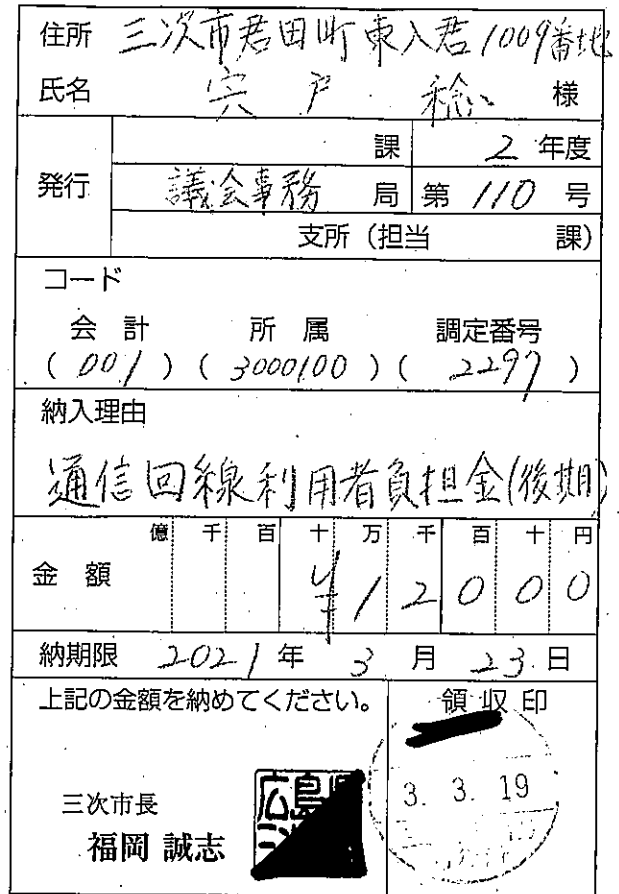 住所 三次市君田町東入君1009番地
氏名 宍戸 稔 様
課 2年度
発行 議会事務局 第110号
支所(担当 課)
コード
会計 所属 調定番号
(001)(3000100)(2297)
納入理由
通信回線利用者負担金(後期)
億 千 百 十 万 千 百 十 円
金額 ¥12000
納期限 2021年3月23日
上記の金額を納めてください。 領収印
3. 3. 19
三次市長
福岡 誠志
広島